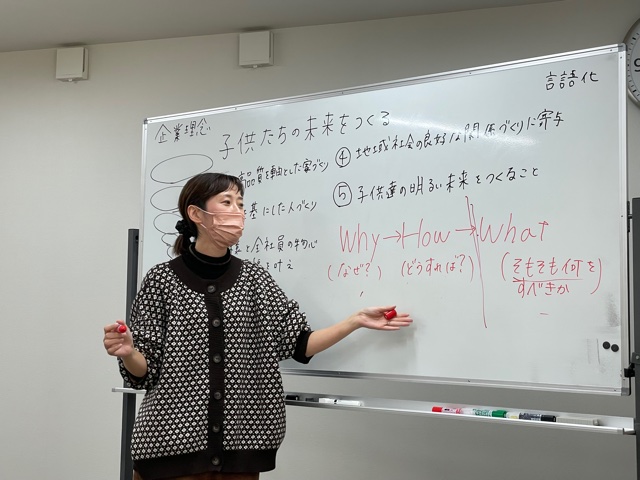 言語化
企業理念 子供たちの未来をつくる
品質を軸とした家づくり
④ 地域社会の良好な関係づくりに寄与
を基にした人づくり
⑤ 子供達の明るい未来をつくること
と全社員の物心
を叶え
Why→How→What
(なぜ?) (どうすれば?) (そもそも何を
すべきか)